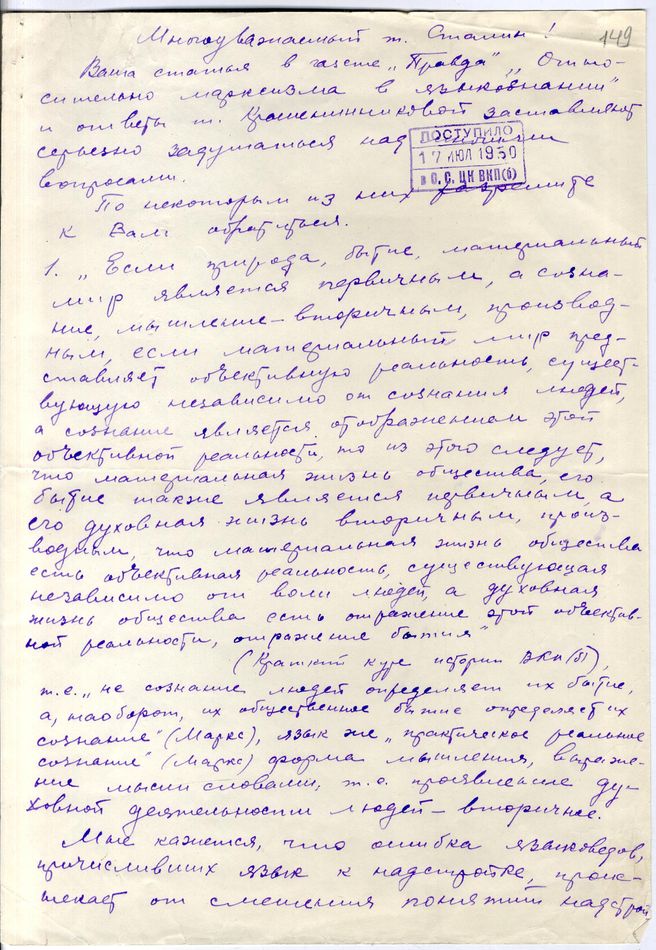 149
Многоуважаемый т. Сталин!
Ваша статья в газете „Правда" „Отно-
сительно марксизма в языкознании"
и ответы т. Крашенинниковой заставляют
серьезно задуматься над многими
ДОСТУПИЛО
17 ИЮЛ 1950
в О. С. ЦК ВКП(б)
вопросами.
По некоторым из них разрешите
к Вам обратиться.
1. „Если природа, бытие, материальный
мир является первичным, а созна-
ние, мышление – вторичным, производ-
ным, если материальный мир пред-
ставляет объективную реальность, сущест-
вующую независимо от сознания людей,
а сознание является отображением этой
объективной реальности, то из этого следует,
что материальная жизнь общества, его
бытие также является первичным, а
его духовная жизнь вторичным, произ-
водным, что материальная жизнь общества
есть объективная реальность, существующая
независимо от воли людей, а духовная
жизнь общества есть отражение этой объектив-
ной реальности, отражение бытия"
(Краткий курс истории ВКП(б)),
т.е. „не сознание людей определяет их бытие,
а, наоборот, их общественное бытие определяет их
сознание" (Маркс), язык же „практическое реальное
сознание" (Маркс) форма мышления, выраже-
ние мысли словами, т.е. проявление ду-
ховной деятельности людей – вторичное.
Мне кажется, что ошибка языковедов,
причисливших язык к надстройке, проис-
текает от смешения понятий надстрой